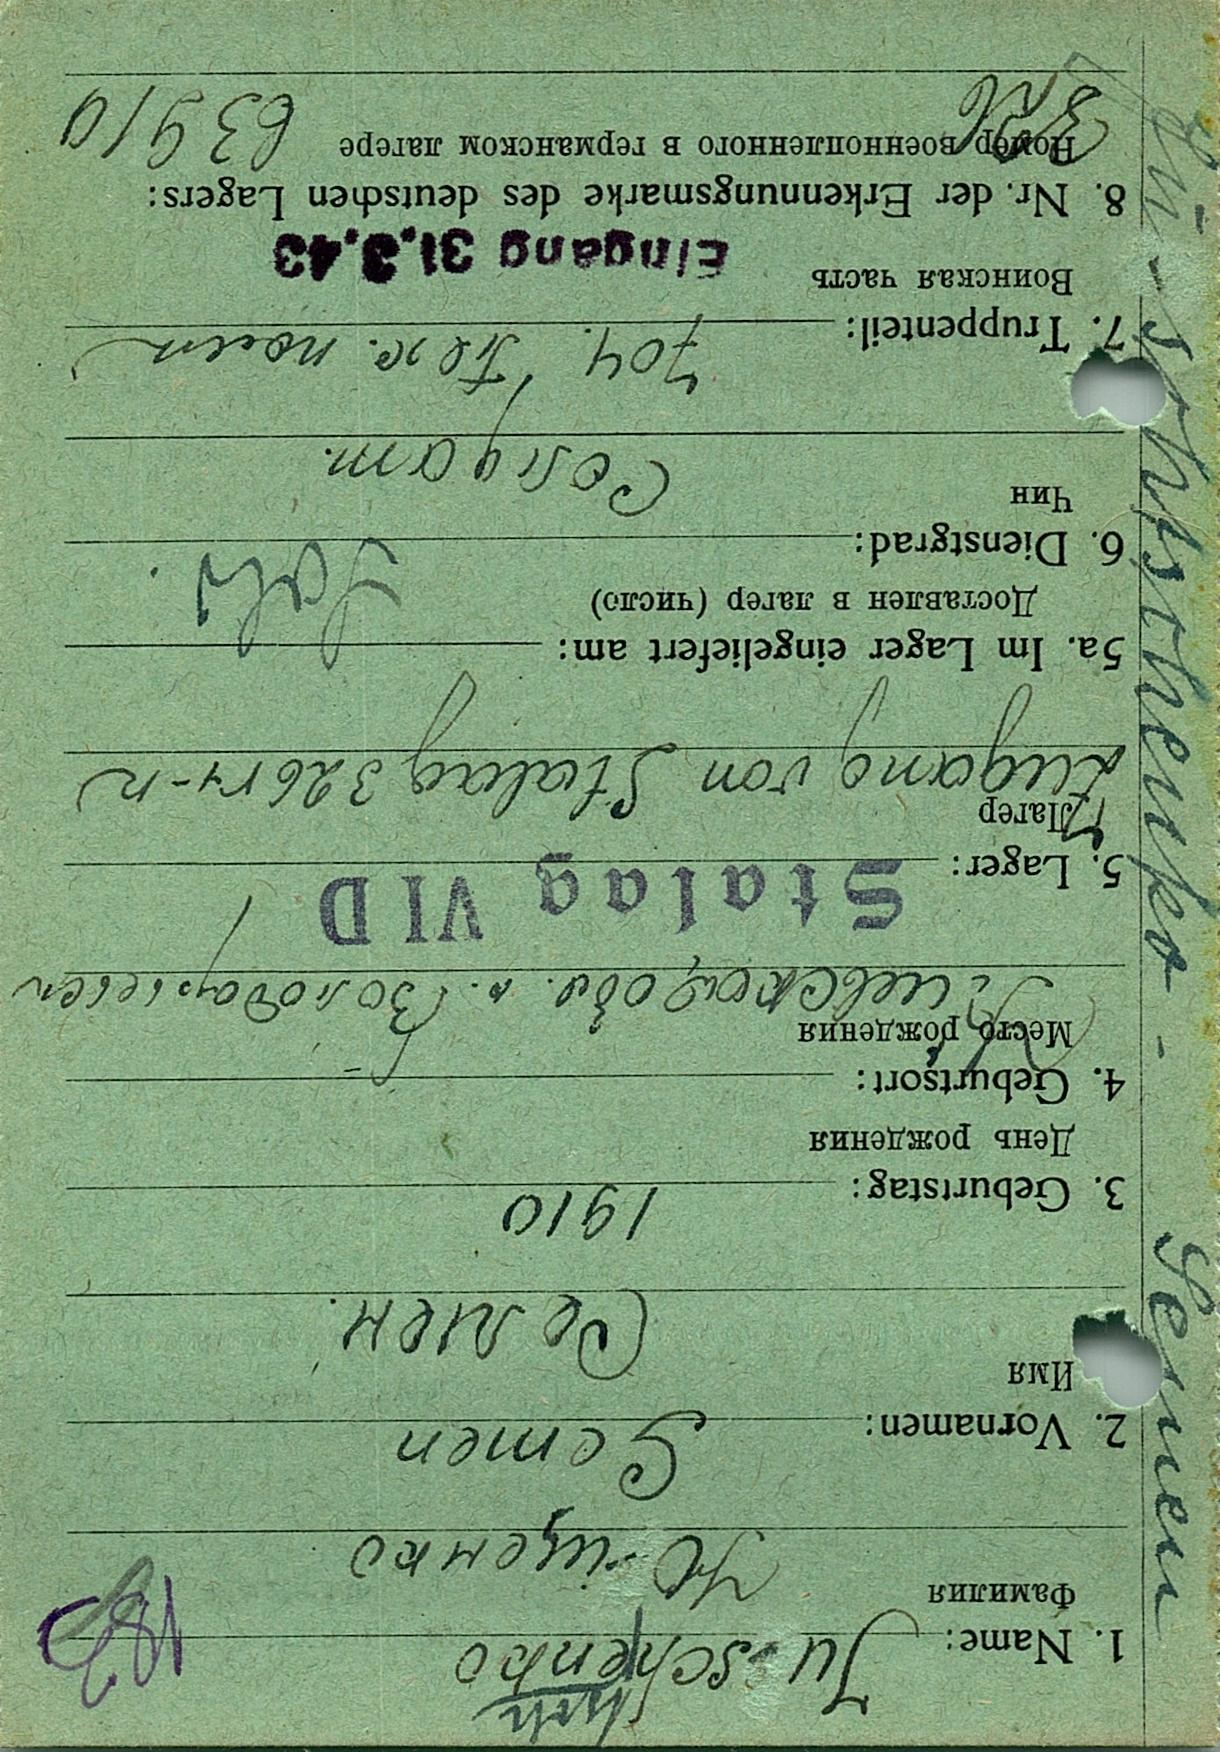 Ju-schtschenko - Semen
1. Name: Ju-schenko
Фамилия Ю-щенко
2. Vornamen: Semen
Имя Семен.
3. Geburtstag: 1910
День рождения
4. Geburtsort:
Место рождения
Киевская обл. с.
Stalag VID
5. Lager:
Лагер
Zugang von Stalag 326
5a. Im Lager eingeliefert am:
Доставлен в лагер (число)
6. Dienstgrad:
Чин Солдат.
7. Truppenteil: 704.
Воинская часть Eingang 31.3.43
8. Nr. der Erkennungsmarke des deutschen Lagers:
Номер военнопленного в германском лагере
326 63910